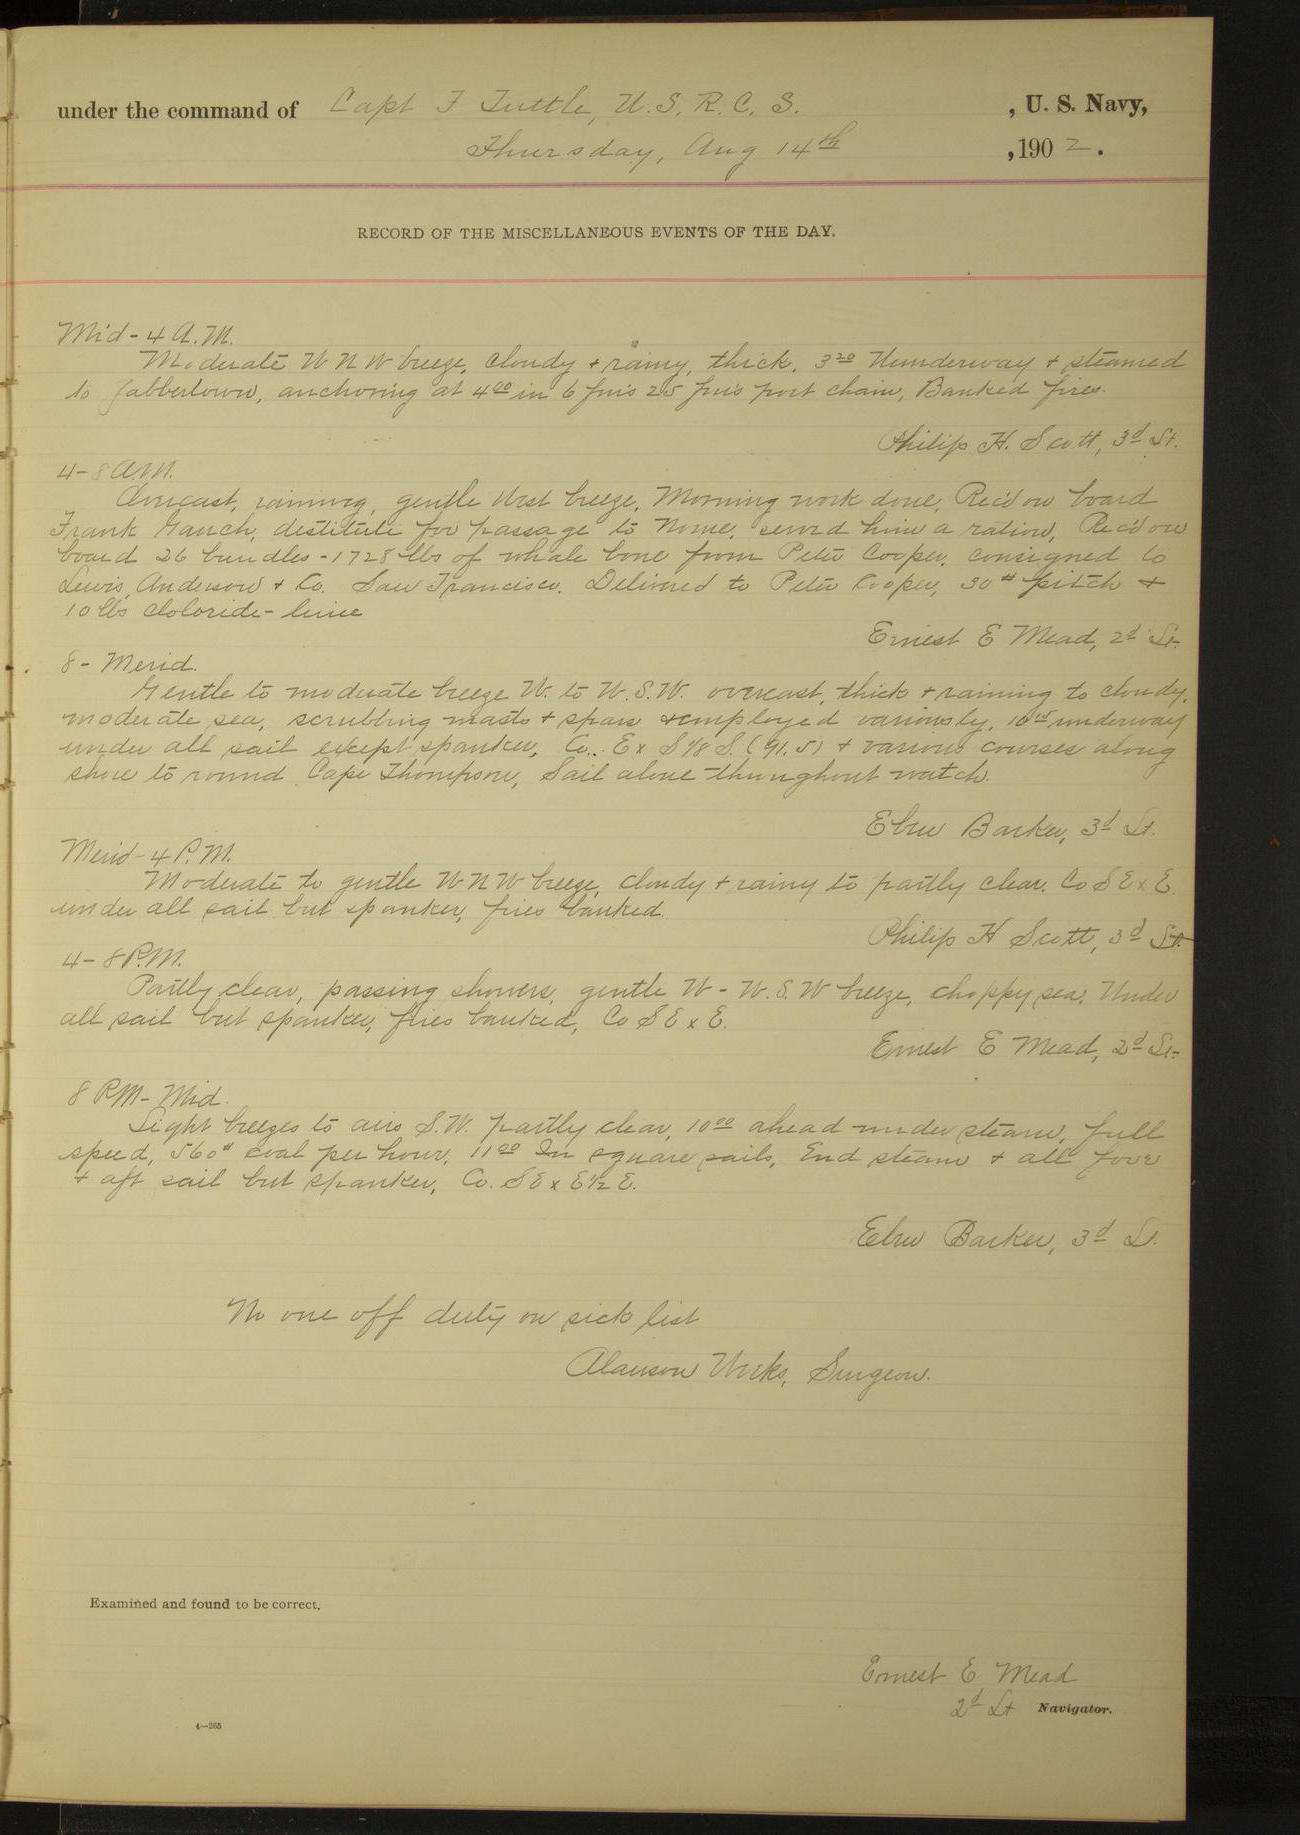 under the command of Capt F Tuttle, U. S. R. C. S. , U. S. Navy,
Thursday, Aug 14th , 1902.
RECORD OF THE MISCELLANEOUS EVENTS OF THE DAY.
Mid - 4 A.M.
Moderate W N W breeze, cloudy + rainy, thick. 3 20 underway + steamed
to Jabbertown, anchoring at 4 00 in 6 fms 25 fms port chain, Banked fires.
Philip H. Scott, 3d Lt.
4 - 8 A.M.
Overcast, raining, gentle West breeze, Morning work done, Rec'd on board
Frank Gauch, destitute for passage to Nome, served him a ration, Rec'd on
board 26 bundles - 1728 lbs of whale bone from Peter Cooper, consigned to
Lewis, Anderson + Co. San Francisco. Delivered to Peter Cooper, 30# pitch +
10 lbs cloloride - lime
Ernest E Mead, 2d Lt.
8 - Merid.
Gentle to moderate breeze W. to W.S.W. overcast, thick + raining to cloudy,
moderate sea, scrubbing masts + spars + employed variously, underway
under all sail except spanker, Co. E x S 1/8 S. (91.5) + various courses along
shore to round Cape Thompson, Sail alone throughout watch.
Eben Barker, 3d Lt.
Merid - 4 P.M.
Moderate to gentle W N W breeze, cloudy + rainy to partly clear. Co S E x E.
under all sail but spanker, fires banked.
Philip H Scott, 3d Lt.
4 - 8 P.M.
Partly clear, passing showers, gentle W - W.S.W breeze, choppy sea, Under
all sail but spanker, fires banked, Co S E x E.
Ernest E Mead, 2d Lt.
8 PM - Mid.
Light breezes to airs S.W. partly clear, 10 00 ahead under steam, full
speed, 560# coal per hour, 11 00 In square sails, End steam + all fore
+ aft sail but spanker, Co. S E x E 1/2 E.
Eben Barker, 3d Lt.
No one off duty on sick list
Alanson Weeks, Surgeon.
Examined and found to be correct.
Ernest E Mead
2d Lt Navigator.
4—265